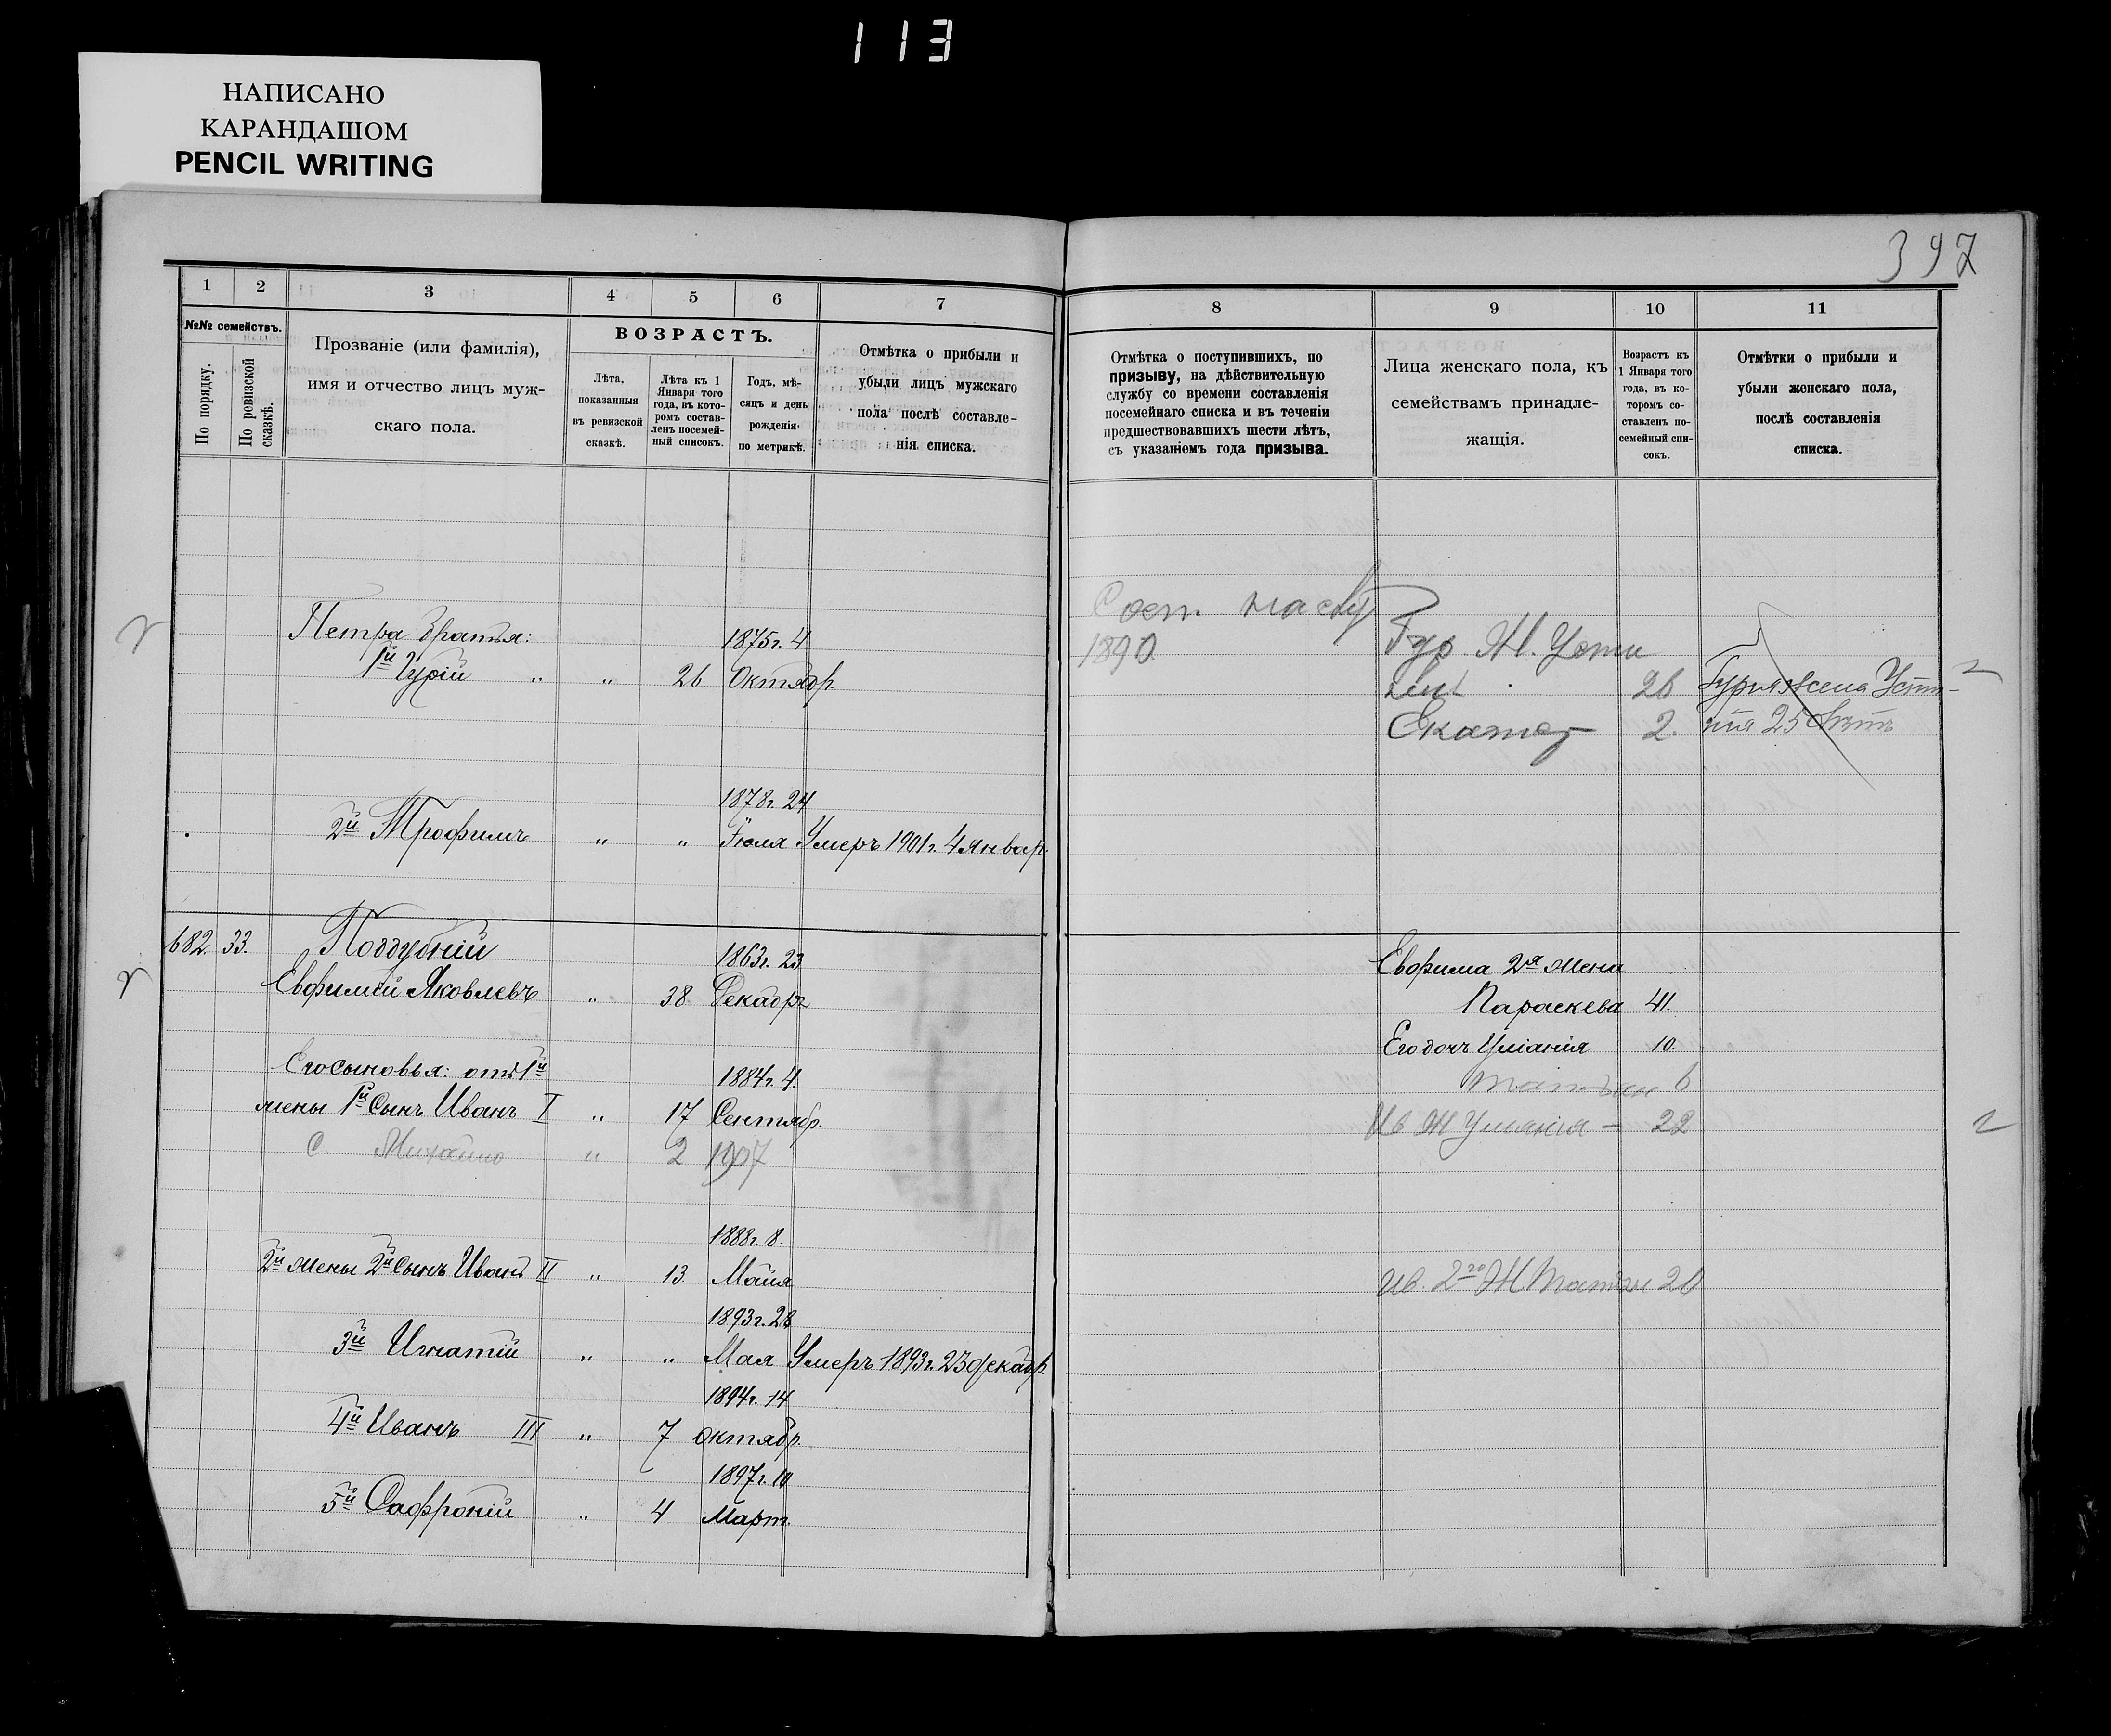 113
НАПИСАНО
КАРАНДАШОМ
PENCIL WRITING
397
1 2 3 4 5 6 7
№№ семействъ.
По порядку.
По ревизской сказкѣ.
Прозваніе (или фамилія),
имя и отчество лицъ муж-
скаго пола.
ВОЗРАСТЪ.
Лѣта,
показанныя
въ ревизской
сказкѣ.
Лѣта къ 1
Января того
года, въ кото-
ромъ состав-
ленъ посемей-
ный списокъ.
Годъ, мѣ-
сяцъ и день
рожденія
по метрикѣ.
Отмѣтка о прибыли и
убыли лицъ мужскаго
пола послѣ составле-
нія списка.
8 9 10 11
Отмѣтка о поступившихъ, по
призыву, на дѣйствительную
службу со времени составленія
посемейнаго списка и въ теченіи
предшествовавшихъ шести лѣтъ,
съ указаніемъ года призыва.
Лица женскаго пола, къ
семействамъ принадле-
жащія.
Возрастъ къ
1 Января того
года, въ ко-
торомъ со-
ставленъ по-
семейный спи-
сокъ.
Отмѣтки о прибыли и
убыли женскаго пола,
послѣ составленія
списка.
Петра братья: 1875г. 4
1й Гурій " " 26 Октябр.
1878г. 24
2й Трофимъ " " Іюля Умеръ 1901г. 4 январ.
682. 33. Поддубній 1863г. 23
Евфимій Яковлевъ " 38 Декабр.
Его сыновья: отъ 1й 1884г. 4.
жены 1й Сынъ Иванъ I " 17 Сентябр.
С. Михайло " 2 1907
1888г. 8.
2й жены 2й Сынъ Иванъ II " 13 Майя
1893г. 28
3й Игнатій " " Мая Умеръ 1893г. 23 декабр.
1894г. 14
4й Иванъ III " 7 Октябр.
1897г. 10
5й Сафроній " 4 Март.
Сост. на служ
1890
Гур Ж. Усти
26 Гурія жена Усти-
Екатер 2. нія 25 лѣтъ
Евфима 2я жена
Параскева 41.
Его дочь Уліанія 10.
Татьян 6
Ив Ж Ульяна – 22
Ив. 2го Ж Татьян 20